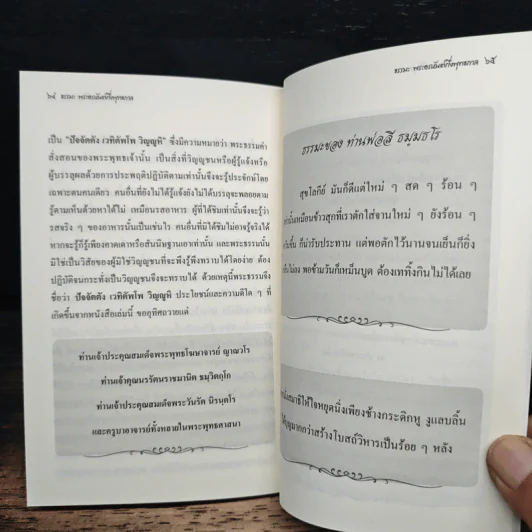 ๖๔ ธรรมะ พระอรหันต์กึ่งพุทธกาล
เป็น "ปัจจัตตัง เวทิตัพโพ วิญญูหิ" ซึ่งมีความหมายว่า พระธรรมคำ
สั่งสอนของพระพุทธเจ้านั้น เป็นสิ่งที่วิญญูชนหรือผู้รู้แจ้งหรือ
ผู้บรรลุผลด้วยการประพฤติปฏิบัติตามเท่านั้นจึงจะรู้ประจักษ์โดย
เฉพาะตนคนเดียว คนอื่นที่ยังไม่ได้รู้แจ้งยังไม่ได้บรรลุจะพลอยตาม
รู้ตามเห็นด้วยหาได้ไม่ เหมือนรสอาหาร ผู้ที่ได้ชิมเท่านั้นจึงจะรู้ว่า
รสจริง ๆ ของอาหารนั้นเป็นเช่นไร คนอื่นที่มิได้ชิมไม่อาจรู้จริงได้
หากจะรู้ก็รู้เพียงคาดเดาหรือสันนิษฐานเอาเท่านั้น และพระธรรมนั้น
มิใช่เป็นวิสัยของผู้มิใช่วิญญูชนที่จะพึงรู้พึงทราบได้โดยง่าย ต้อง
ปฏิบัติจนกระทั่งเป็นวิญญูชนจึงจะทราบได้ ด้วยเหตุนี้พระธรรมจึง
ชื่อว่า ปัจจัตตัง เวทิตัพโพ วิญญูหิ ประโยชน์และความดีใด ๆ ที่
เกิดขึ้นจากหนังสือเล่มนี้ ขออุทิศถวายแด่
ท่านเจ้าประคุณสมเด็จพระพุทธโฆษาจารย์ ญาณวโร
ท่านเจ้าคุณนรรัตนราชมานิต ธมฺวิตกฺโก
ท่านเจ้าประคุณสมเด็จพระวันรัต นิรนฺตโร
และครูบาอาจารย์ทั้งหลายในพระพุทธศาสนา
ธรรมะ พระอรหันต์กึ่งพุทธกาล ๖๕
ธรรมะของ ท่านพ่อลี ธมฺมธโร
สุขโลกีย์ มันก็ดีแต่ใหม่ ๆ สด ๆ ร้อน ๆ
เหมือนข้าวสุกที่เราตักใส่จานใหม่ ๆ ยังร้อน ๆ
ก็น่ารับประทาน แต่พอตักไว้นานจนเย็นก็ยิ่ง
พอข้ามวันก็เหม็นบูด ต้องเททิ้งกินไม่ได้เลย
สมาธิให้ใจหยุดนิ่งเพียงช้างกระดิกหู งูแลบลิ้น
บุญมากกว่าสร้างโบสถ์วิหารเป็นร้อย ๆ หลัง